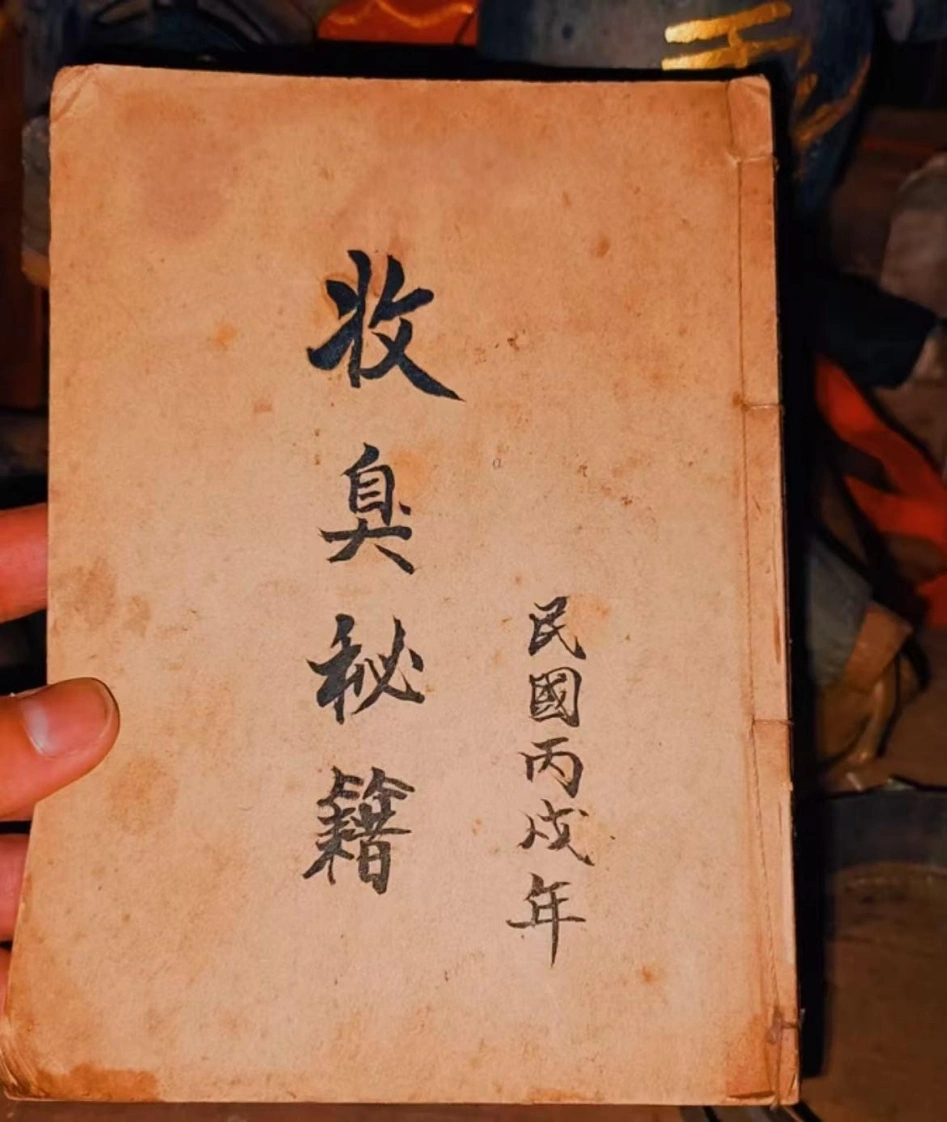 民國丙戌年
收臭秘籍